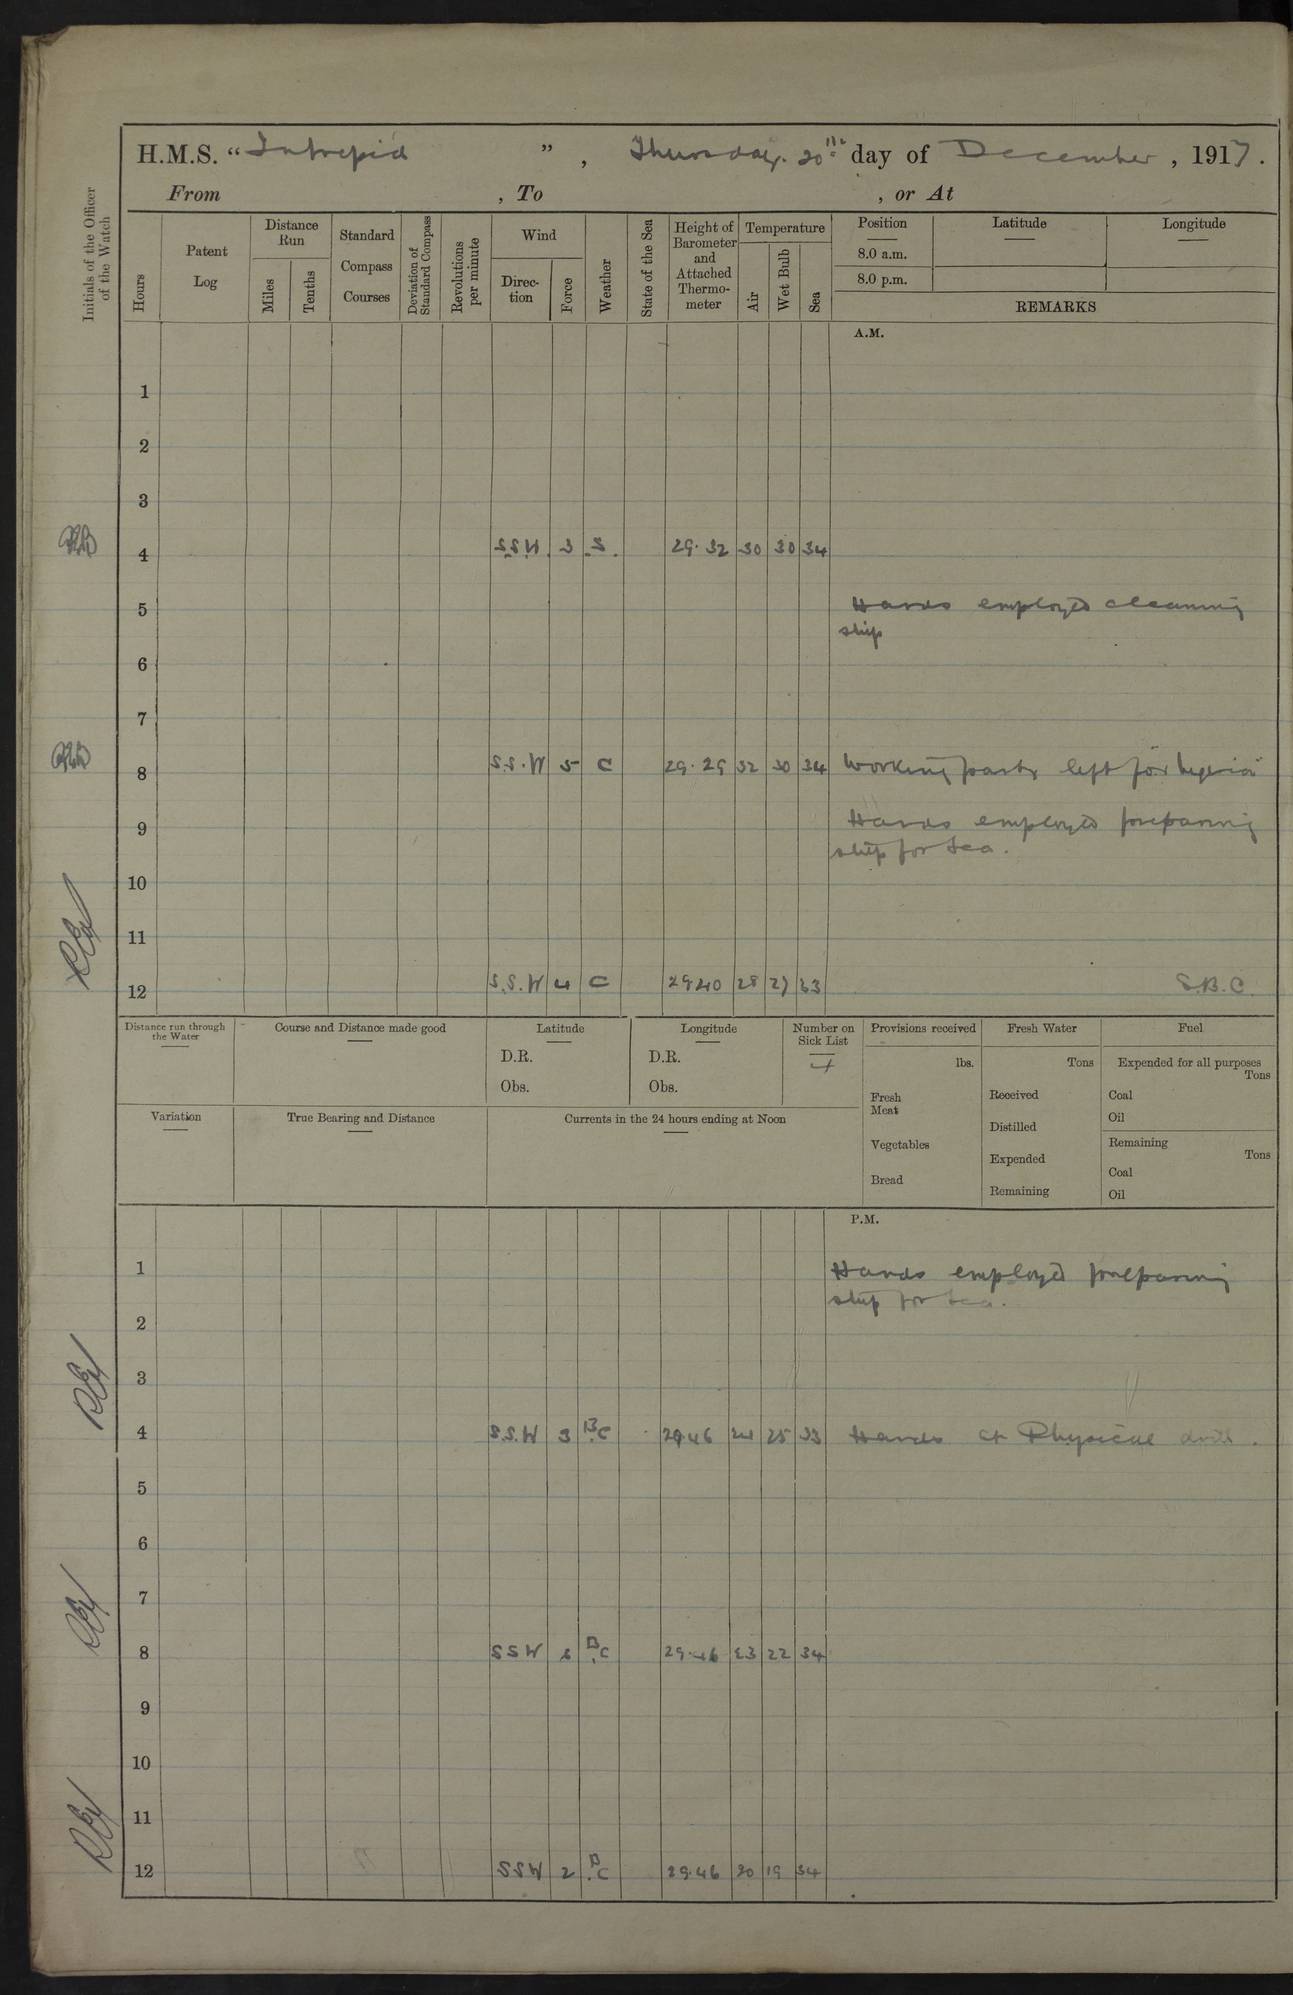 H.M.S. “Intrepid”, Thursday. 20th day of December, 1917.
From , To , or At
Initials of the Officer of the Watch
Hours
Patent Log
Distance Run
Miles
Tenths
Standard Compass Courses
Deviation of Standard Compass
Revolutions per minute
Wind
Direction
Force
Weather
State of the Sea
Height of Barometer and Attached Thermometer
Temperature
Air
Wet Bulb
Sea
Position
8.0 a.m.
8.0 p.m.
Latitude
Longitude
REMARKS
A.M.
1
2
3
4 S.S.W. 3 S. 29.32 30 30 34
5 Hands employed cleaning
ship
6
7
8 S.S.W 5 C 29.29 32 30 34 Working party left for
9 Hands employed preparing
ship for sea.
10
11
12 S.S.W 4 C 29.40 28 27 33 S.B.C.
Distance run through the Water
Course and Distance made good
Latitude
D.R.
Obs.
Longitude
D.R.
Obs.
Number on Sick List
Provisions received
lbs.
Fresh Meat
Vegetables
Bread
Fresh Water
Tons
Received
Distilled
Expended
Remaining
Fuel
Expended for all purposes
Tons
Coal
Oil
Remaining
Tons
Coal
Oil
Variation
True Bearing and Distance
Currents in the 24 hours ending at Noon
P.M.
1 Hands employed preparing
ship for sea.
2
3
4 S.S.W 3 BC 29.46 25 33 Hands at Physical drill.
5
6
7
8 SSW BC 29.46 23 22 34
9
10
11
12 SSW 2 BC 29.46 20 19 34